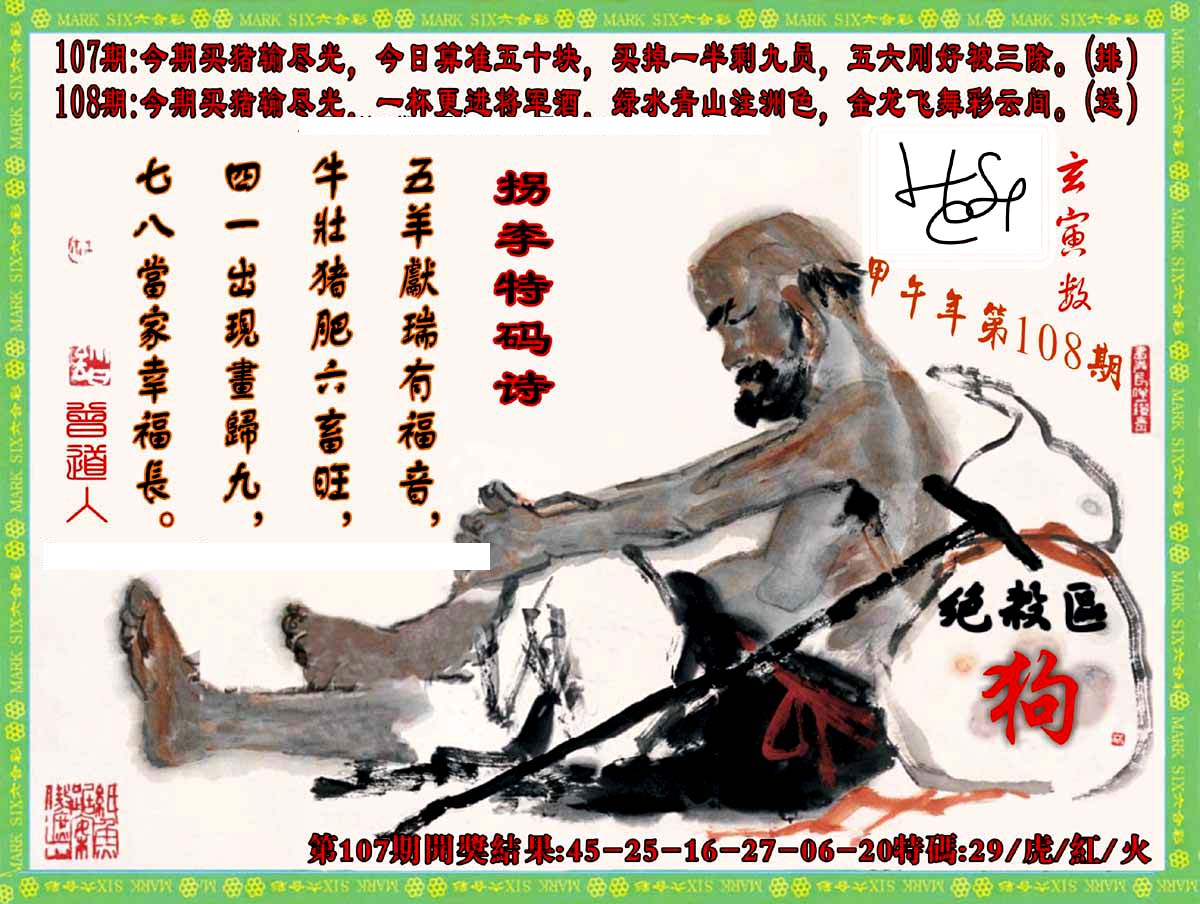 MARK SIX六合彩 MARK SIX六合彩 MARK SIX六合彩 MARK SIX六合彩 MARK SIX六合彩 MARK SIX六合彩
107期:今期买猪输尽光，今日算准五十块，买掉一半剩九员，五六刚好被三除。(排)
108期:今期买猪输尽光，一杯更进将军酒，绿水青山注洲色，金龙飞舞彩云间。(送)
玄寅数
甲午年第108期
拐李特码诗
五羊獻瑞有福音，
牛壯猪肥六畜旺，
四一出現畫歸九，
七八當家幸福長。
曾道人
绝殺區
狗
第107期開獎結果:45-25-16-27-06-20特碼:29/虎/紅/火